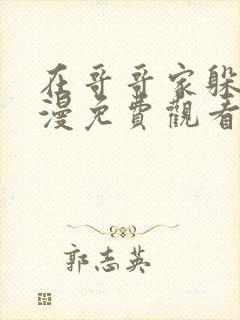 在哥哥家躲
漫免費觀看
郭志英